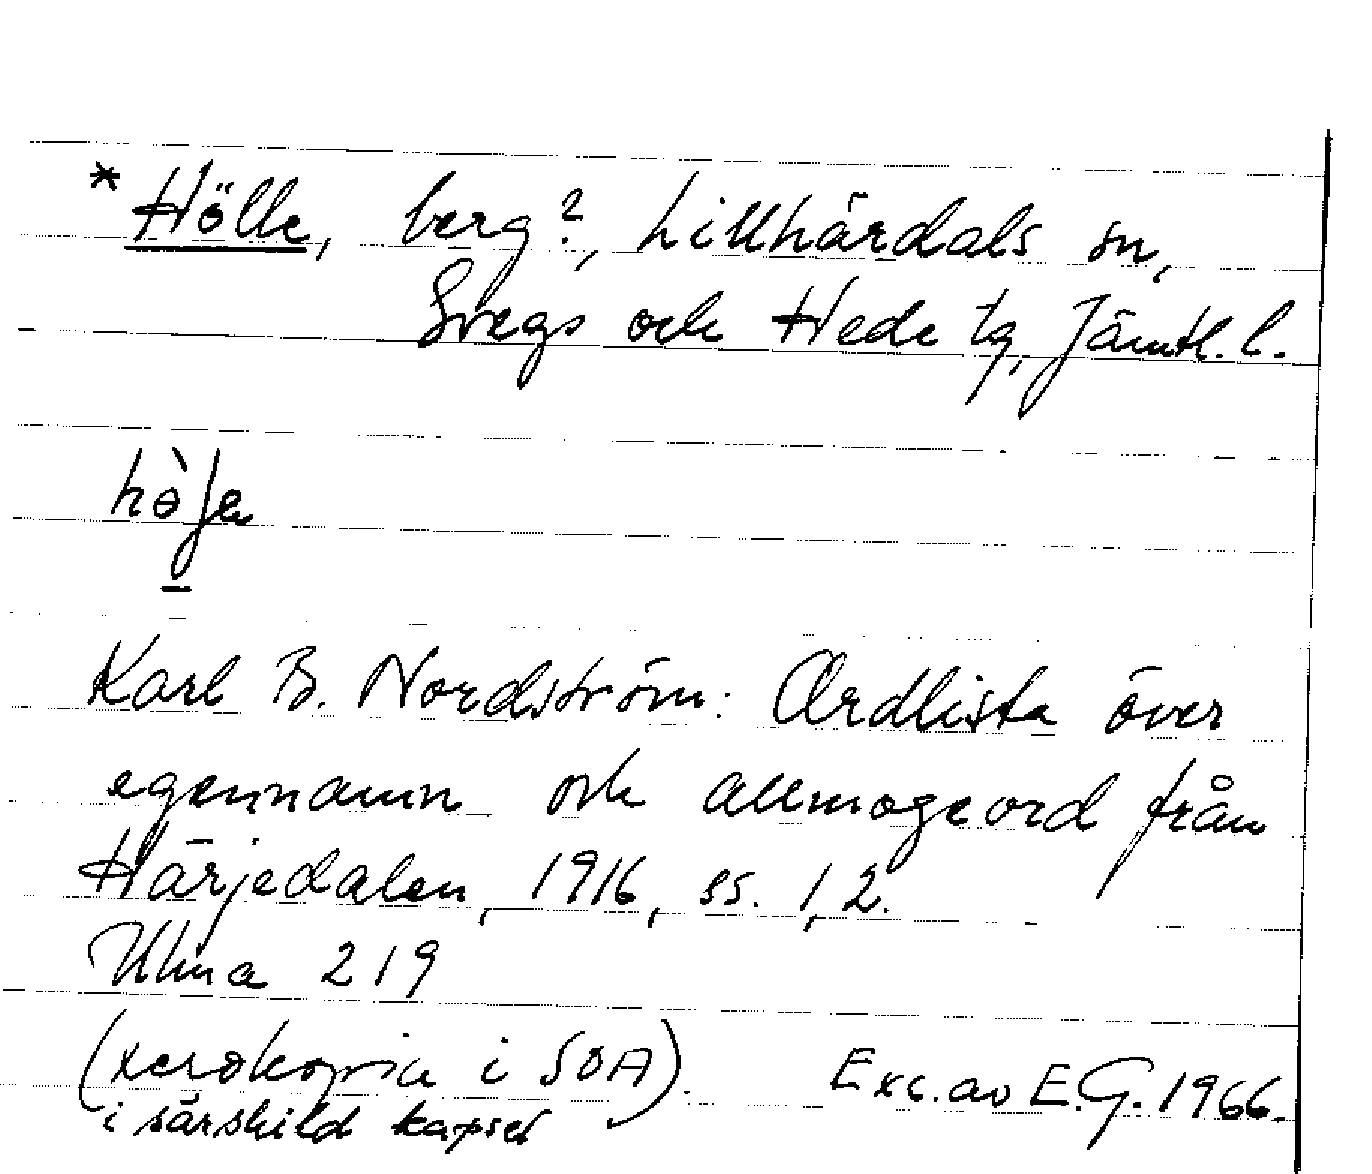 * Hölle, berg?, Lillhärdals sn,
Svegs och Hede tg, Jämtl. l.
Karl B. Nordström: Ordlista över
egennamn och allmogeord från
Härjedalen, 1916, ss. 1, 2.
Ulma 219
(xerokopia i SOA).
Exc. av E.G. 1966.
i särskild kapsel